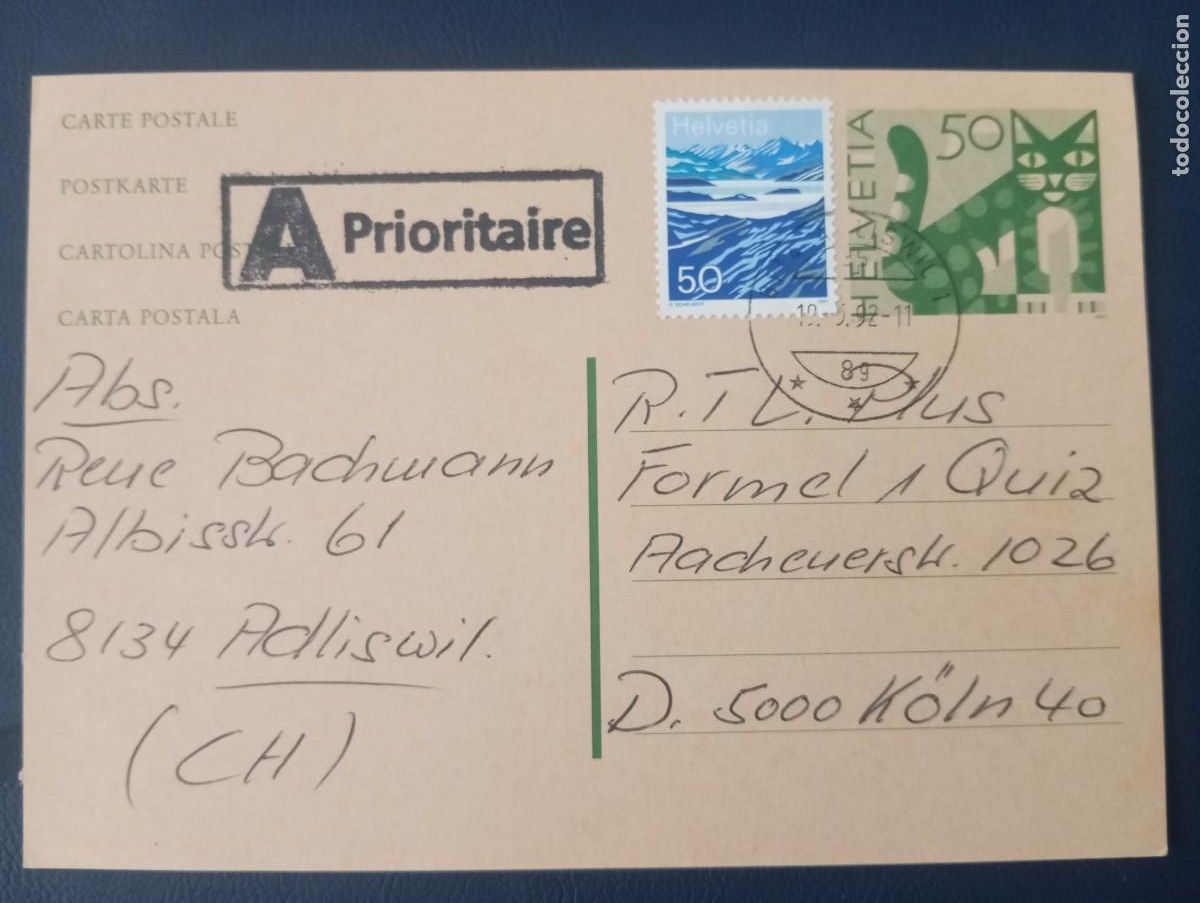 CARTE POSTALE
POSTKARTE
CARTOLINA POST
CARTA POSTALA
A Prioritaire
Helvetia
50
HELVETIA
50
19.-5.92-11
8g
Abs.
Rene Bachmann
Albisstr. 61
8134 Adliswil.
(CH)
R.T L. Plus
Formel 1 Quiz
Aachenerstr. 1026
D. 5000 Köln 40
todocoleccion